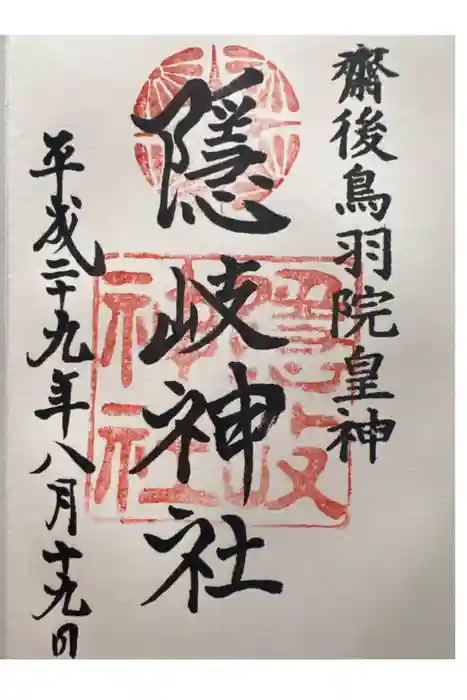 齋後鳥羽院皇神
隠岐神社
平成二十九年八月十九日
隠岐
神社